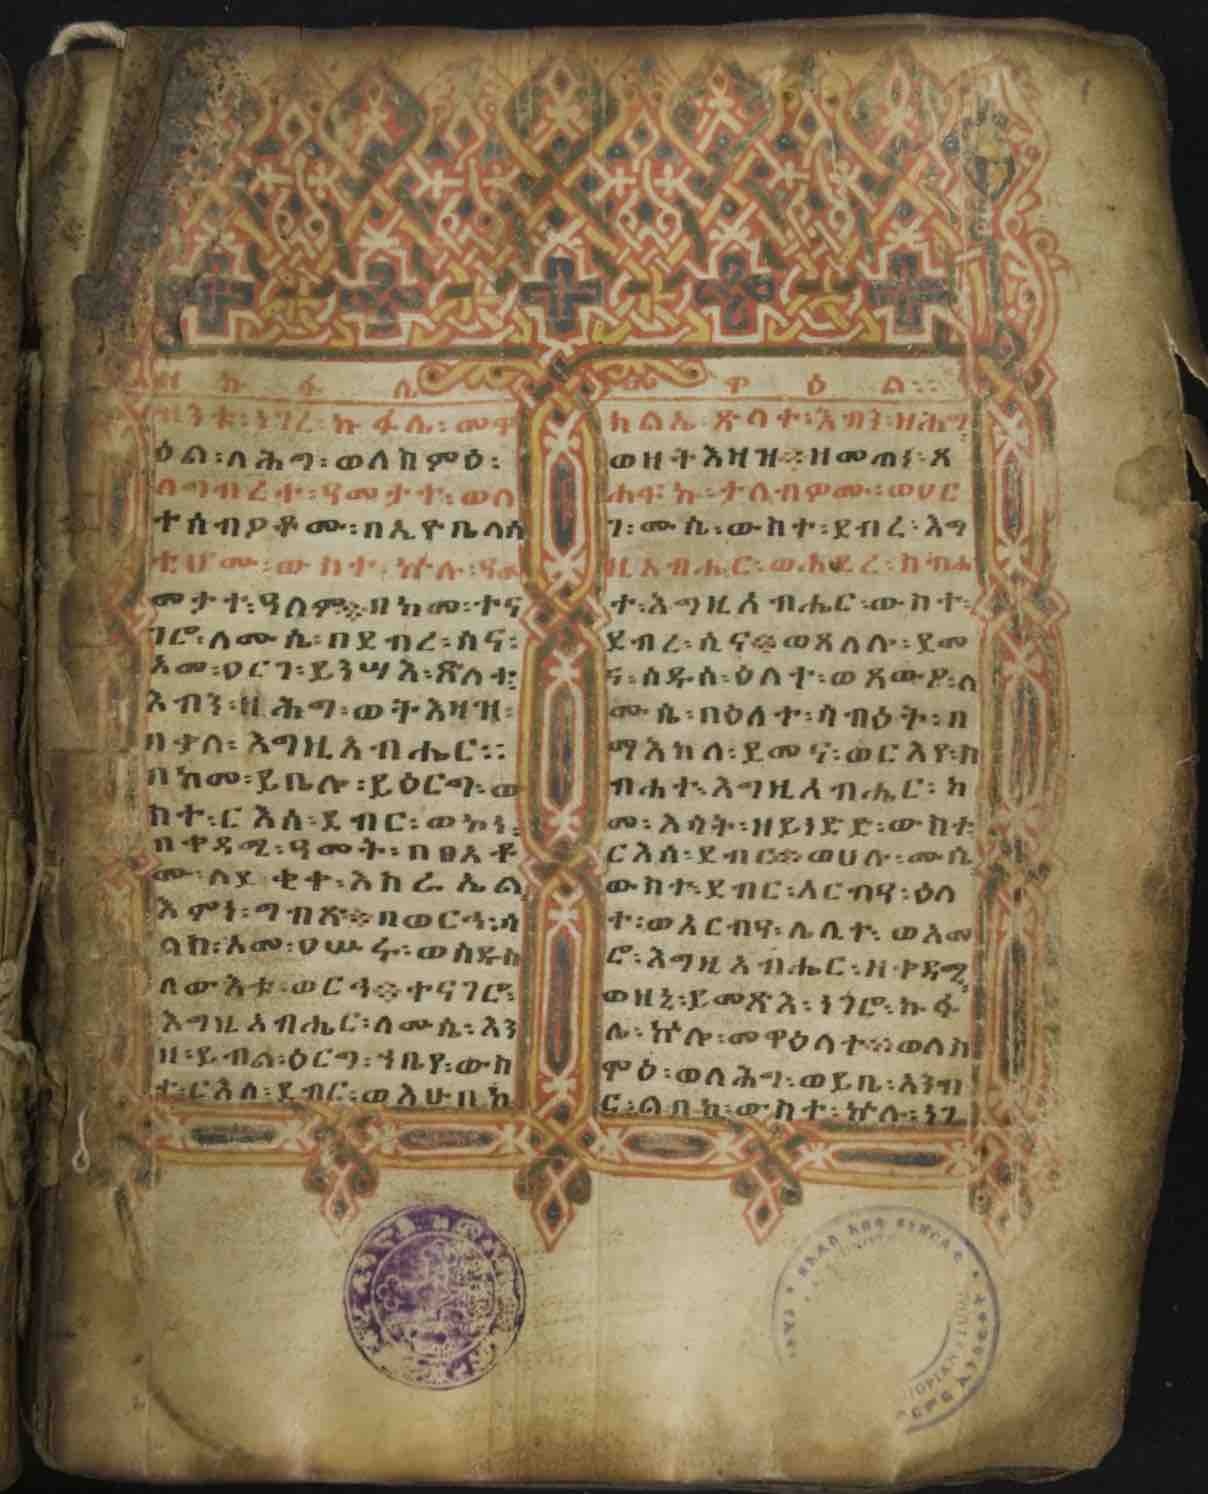 ዘ ኩ ፋ ሌ
ዝንቱ፡ነገረ፡ኩፋሌ፡መዋ
ዕል፡ለሕግ፡ወለስምዕ፡
ለግብረተ፡ዓመታተ፡ወለ
ተሰብዖቶሙ፡በኢዮቤላሳ
ቲሆሙ፡ውስተ፡ኵሉ፡ዓ
መታተ፡ዓለም፨በከመ፡ተና
ገሮ፡ለሙሴ፡በደብረ፡ሲና፡
አመ፡ዐርገ፡ይንሣእ፡ጽላተ
እብን፡ዘሕግ፡ወትእዛዝ፡
በቃለ፡እግዚአብሔር፡፡
በከመ፡ይቤሎ፡ይዕርግ፡ው
ስተ፡ርእሰ፡ደብር፡ወኮነ፡
በቀዳሚ፡ዓመት፡በፀአቶ
ሙ፡ለደቂቀ፡እስራኤል
እምነ፡ግብጽ፨በወርኅ፡ሣ
ልስ፡አመ፡ዐሡሩ፡ወሰዱሱ
ለውእቱ፡ወርኅ፨ተናገሮ፡
እግዚአብሔር፡ለሙሴ፡እን
ዘ፡ይብል፡ዕርግ፡ኀቤየ፡ውስ
ተ፡ርእሰ፡ደብር፡ወእሁበከ
መ ዋ ዕ ል፡፡
ክልኤ፡ጽላተ፡እብን፡ዘሕግ
ወዘትእዛዝ፨ዘመጠነ፡ጸ
ሐፍኩ፡ታለብዎሙ፡ወዐር
ገ፡ሙሴ፡ውስተ፡ደብረ፡እግ
ዚአብሔር፡ወኀደረ፡ስብሐ
ተ፡እግዚአብሔር፡ውስተ፡
ደብረ፡ሲና፨ወጸለሎ፡ደመ
ና፡ሰዱሰ፡ዕለተ፡ወጸውዖ፡ለ
ሙሴ፡በዕለተ፡ሳብዕት፡በ
ማእከለ፡ደመና፡ወርእየ፡ስ
ብሐተ፡እግዚአብሔር፡ከ
መ፡እሳት፡ዘይነድድ፡ውስተ
ርእሰ፡ደብር፨ወሀሎ፡ሙሴ
ውስተ፡ደብር፡አርብዓ፡ዕለ
ተ፡ወአርብዓ፡ሌሊተ፡ወአመ
ሮ፡እግዚአብሔር፡ዘቀዳሚ
ወዘኒ፡ይመጽእ፡ነጎሮ፡ኩፋ
ሌ፡ኵሎ፡መዋዕላተ፨ወለስ
ምዕ፡ወለሕግ፡ወይቤ፡አንብ
ር፡ልበከ፡ውስተ፡ኵሉ፡ነገ